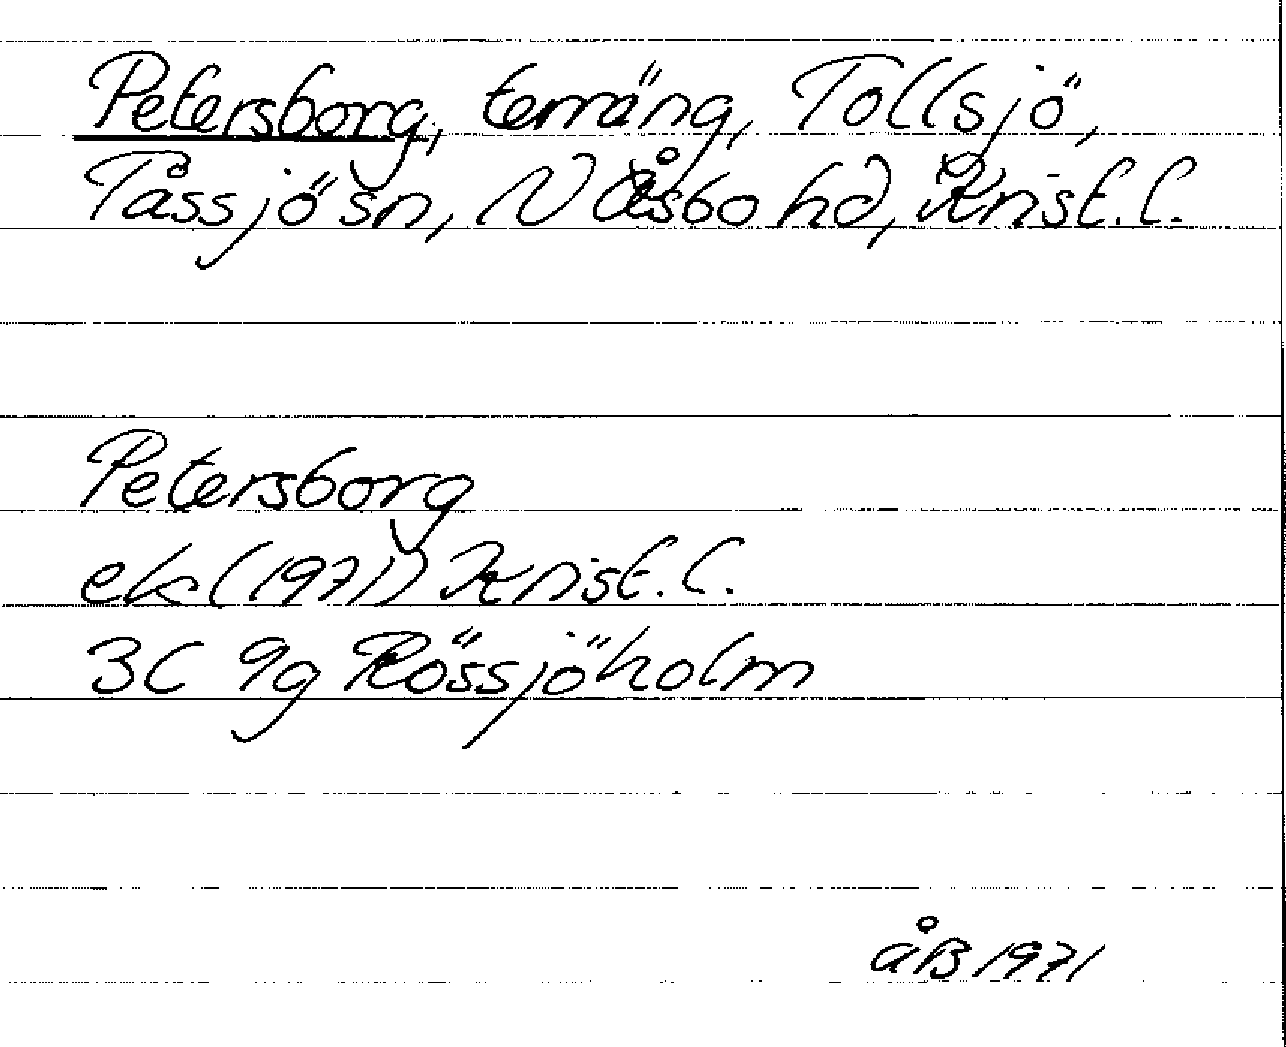 Petersborg, terräng, Tollsjö,
Tåssjö sn, N Åsbo hd, Krist. l.
Petersborg
ek (1971) Krist. l.
3C 9g Rössjöholm
åB 1971